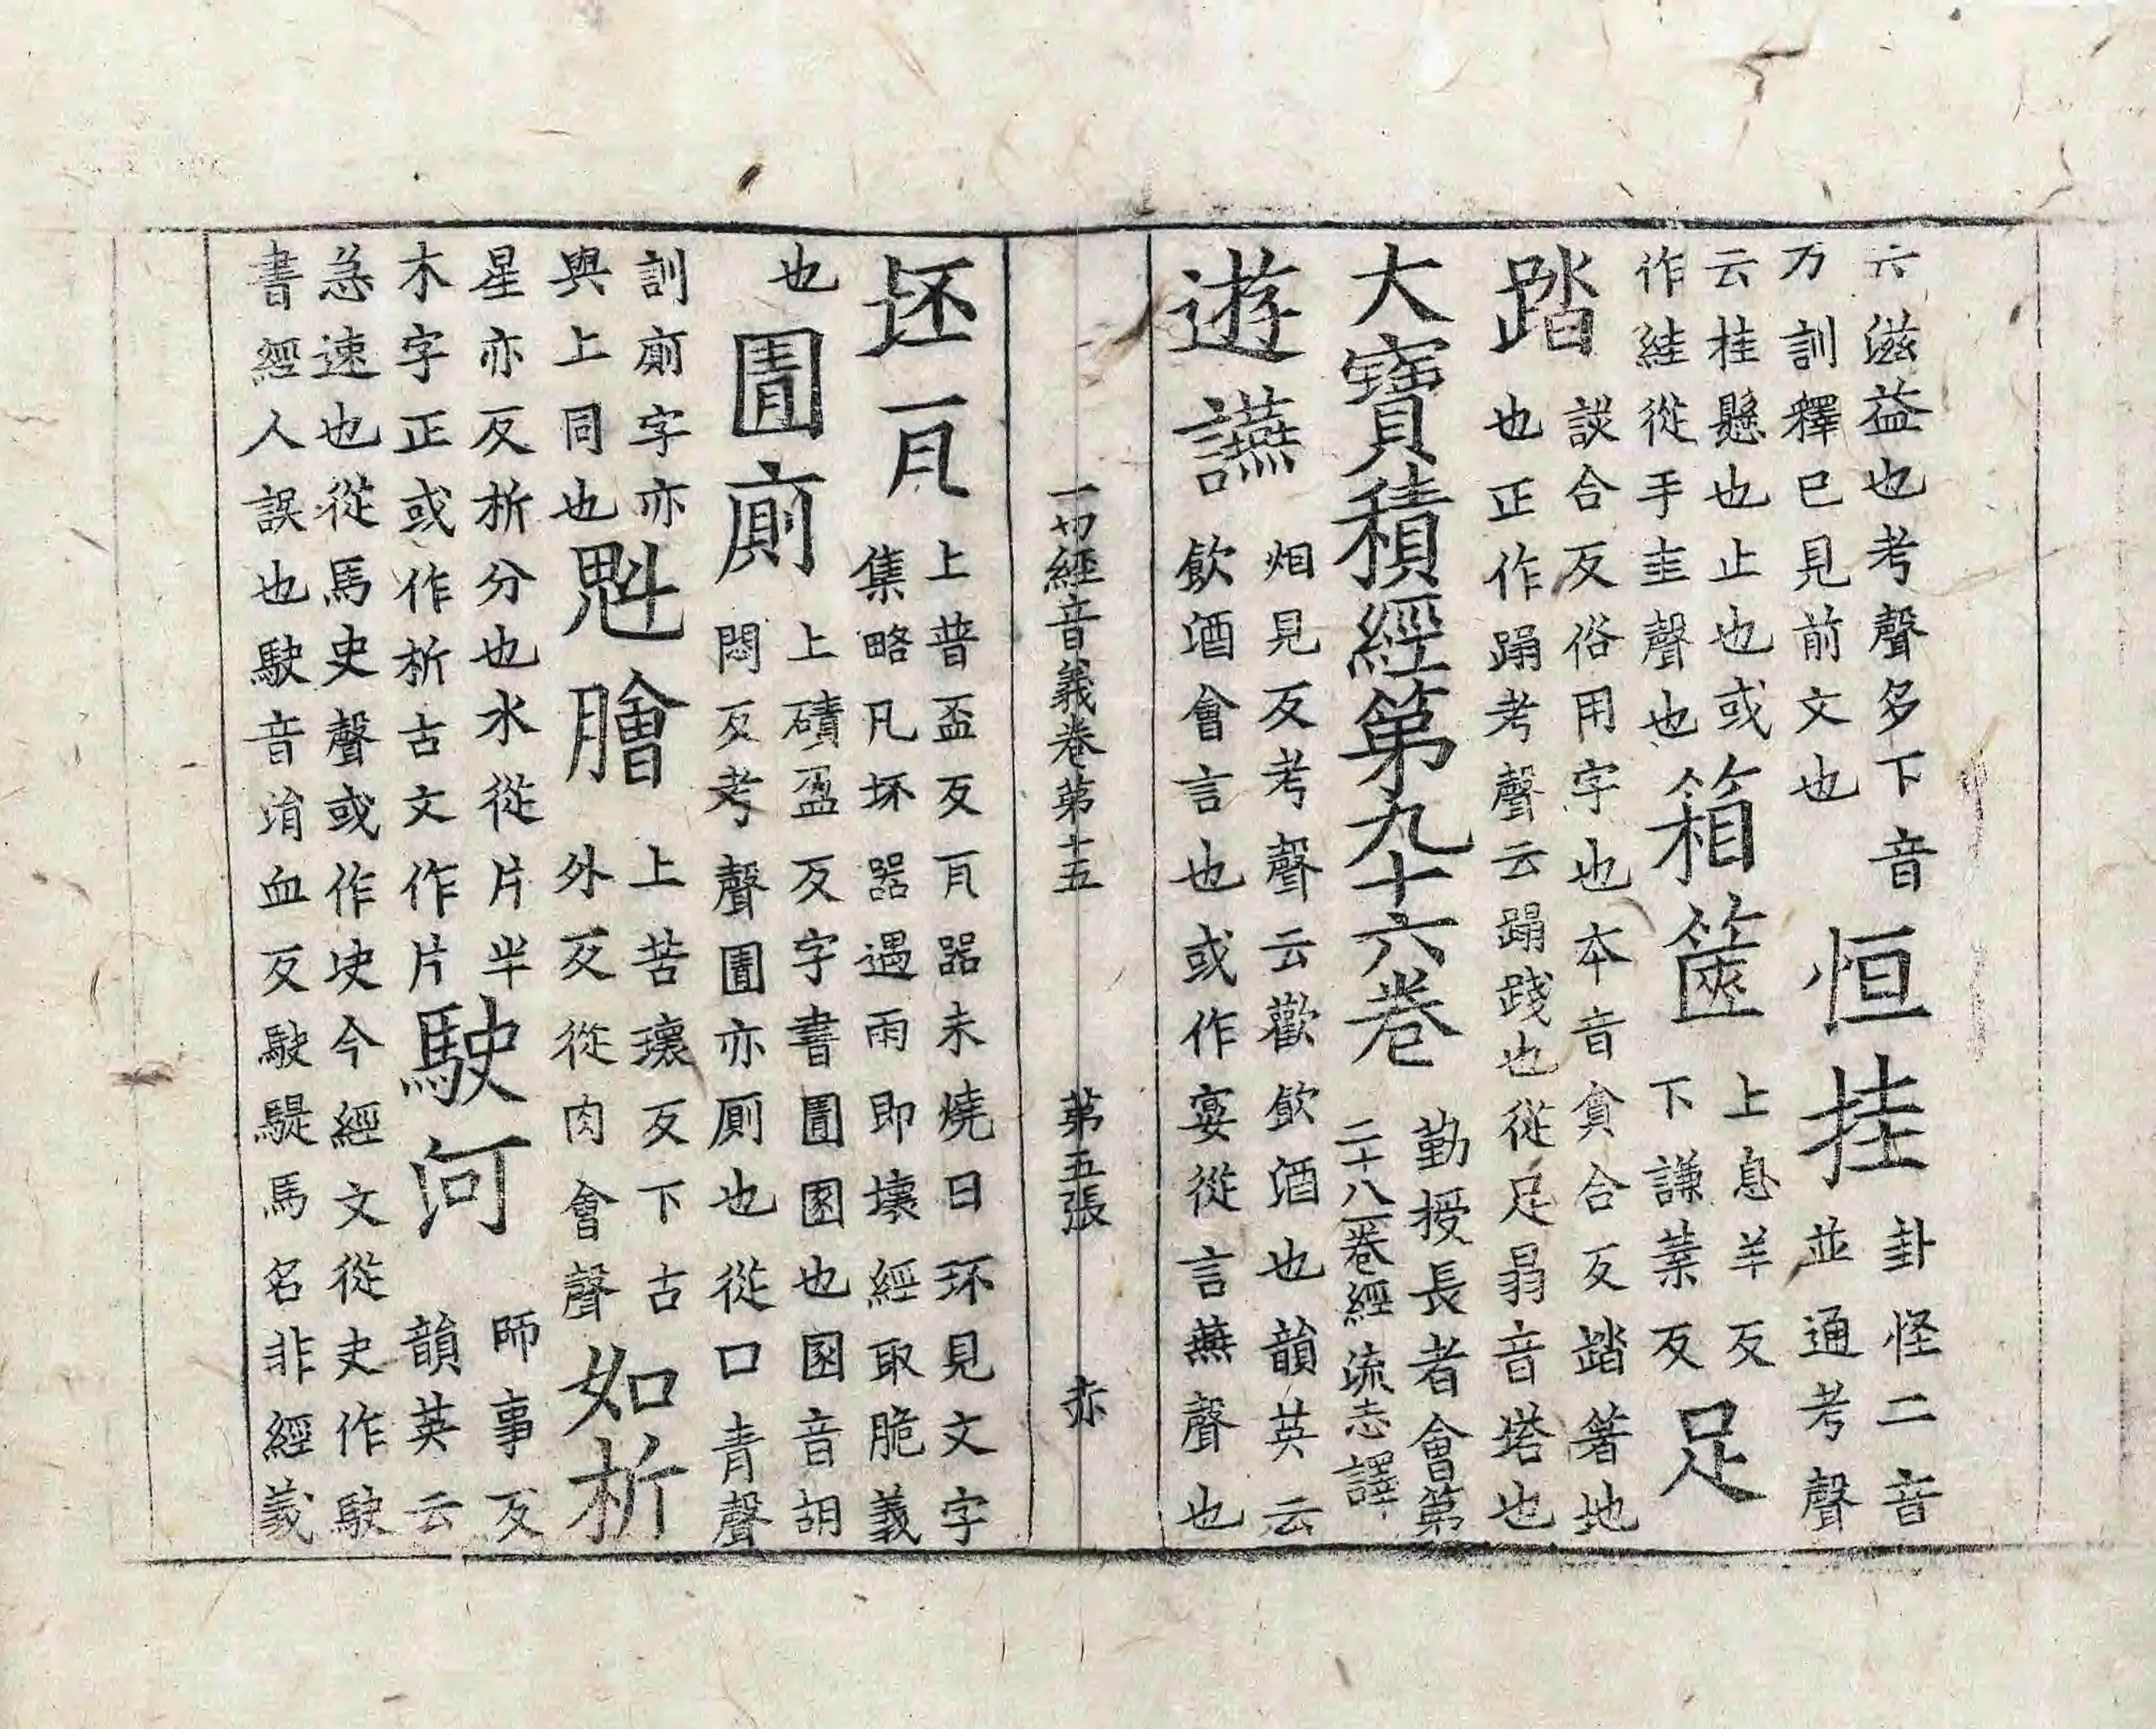 六滋益也考聲多下音
万訓釋已見前文也
恒挂
卦怪二音
並通考聲
云桂懸也止也或
作絓從手圭聲也
箱篋
上息羊反
下謙葉反
足
踏
談合反俗用字也本音貪合反踏著地
也正作蹋考聲云蹋踐也從足𦐇音塔也
大寶積經第九十六卷
勤授長者會第
二十八一卷經流志譯
遊讌
烟見反考聲云歡飲酒也韻英云
飲酒會言也或作宴從言燕聲也
一切經音義卷第十五 第五張 赤
坯瓦
上普盃反瓦器未燒曰坏見文字
集略凡坏器遇雨即壞經取脆義
也
圊廁
上磧盈反字書圊圂也圂音胡
悶反考聲圊亦廁也從口青聲
訓廁字亦
與上同也
魁膾
上苦瓌反下古
外反從肉會聲
如析
星亦反析分也水從片半
木字正或作析古文作片
駛河
師事反
韻英云
急速也從馬史聲或作今經文從史作駛
書經人誤也駛音涓血反駛騠馬名非經義